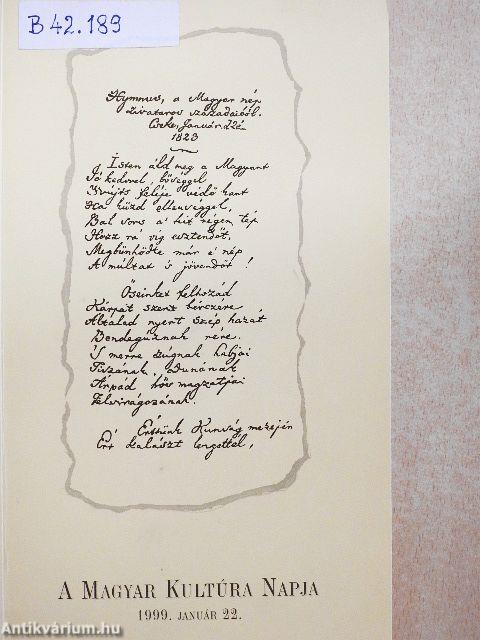 B 42.189
Hymnus, a Magyar nép
zivataros századaiból.
Cseke, Január 22én
1823
Isten áld meg a Magyart
Jó kedvvel, bőséggel
Nyújts feléje védő kart
Ha küzd ellenséggel,
Bal sors a' kit régen tép
Hozz rá víg esztendőt,
Megbünhödte már e' nép
A' múltat 's jövendőt!
Őseinket felhozád
Kárpát szent bérczére
Általad nyert szép hazát
Bendegúznak vére.
'S merre zúgnak habjai
Tiszának, Dunának
Árpád hős magzatjai
Felvirágozának.
Értünk Kunság mezején
Ért kalászt lengettél,
A MAGYAR KULTÚRA NAPJA
1999. JANUÁR 22.
Antikvárium.hu